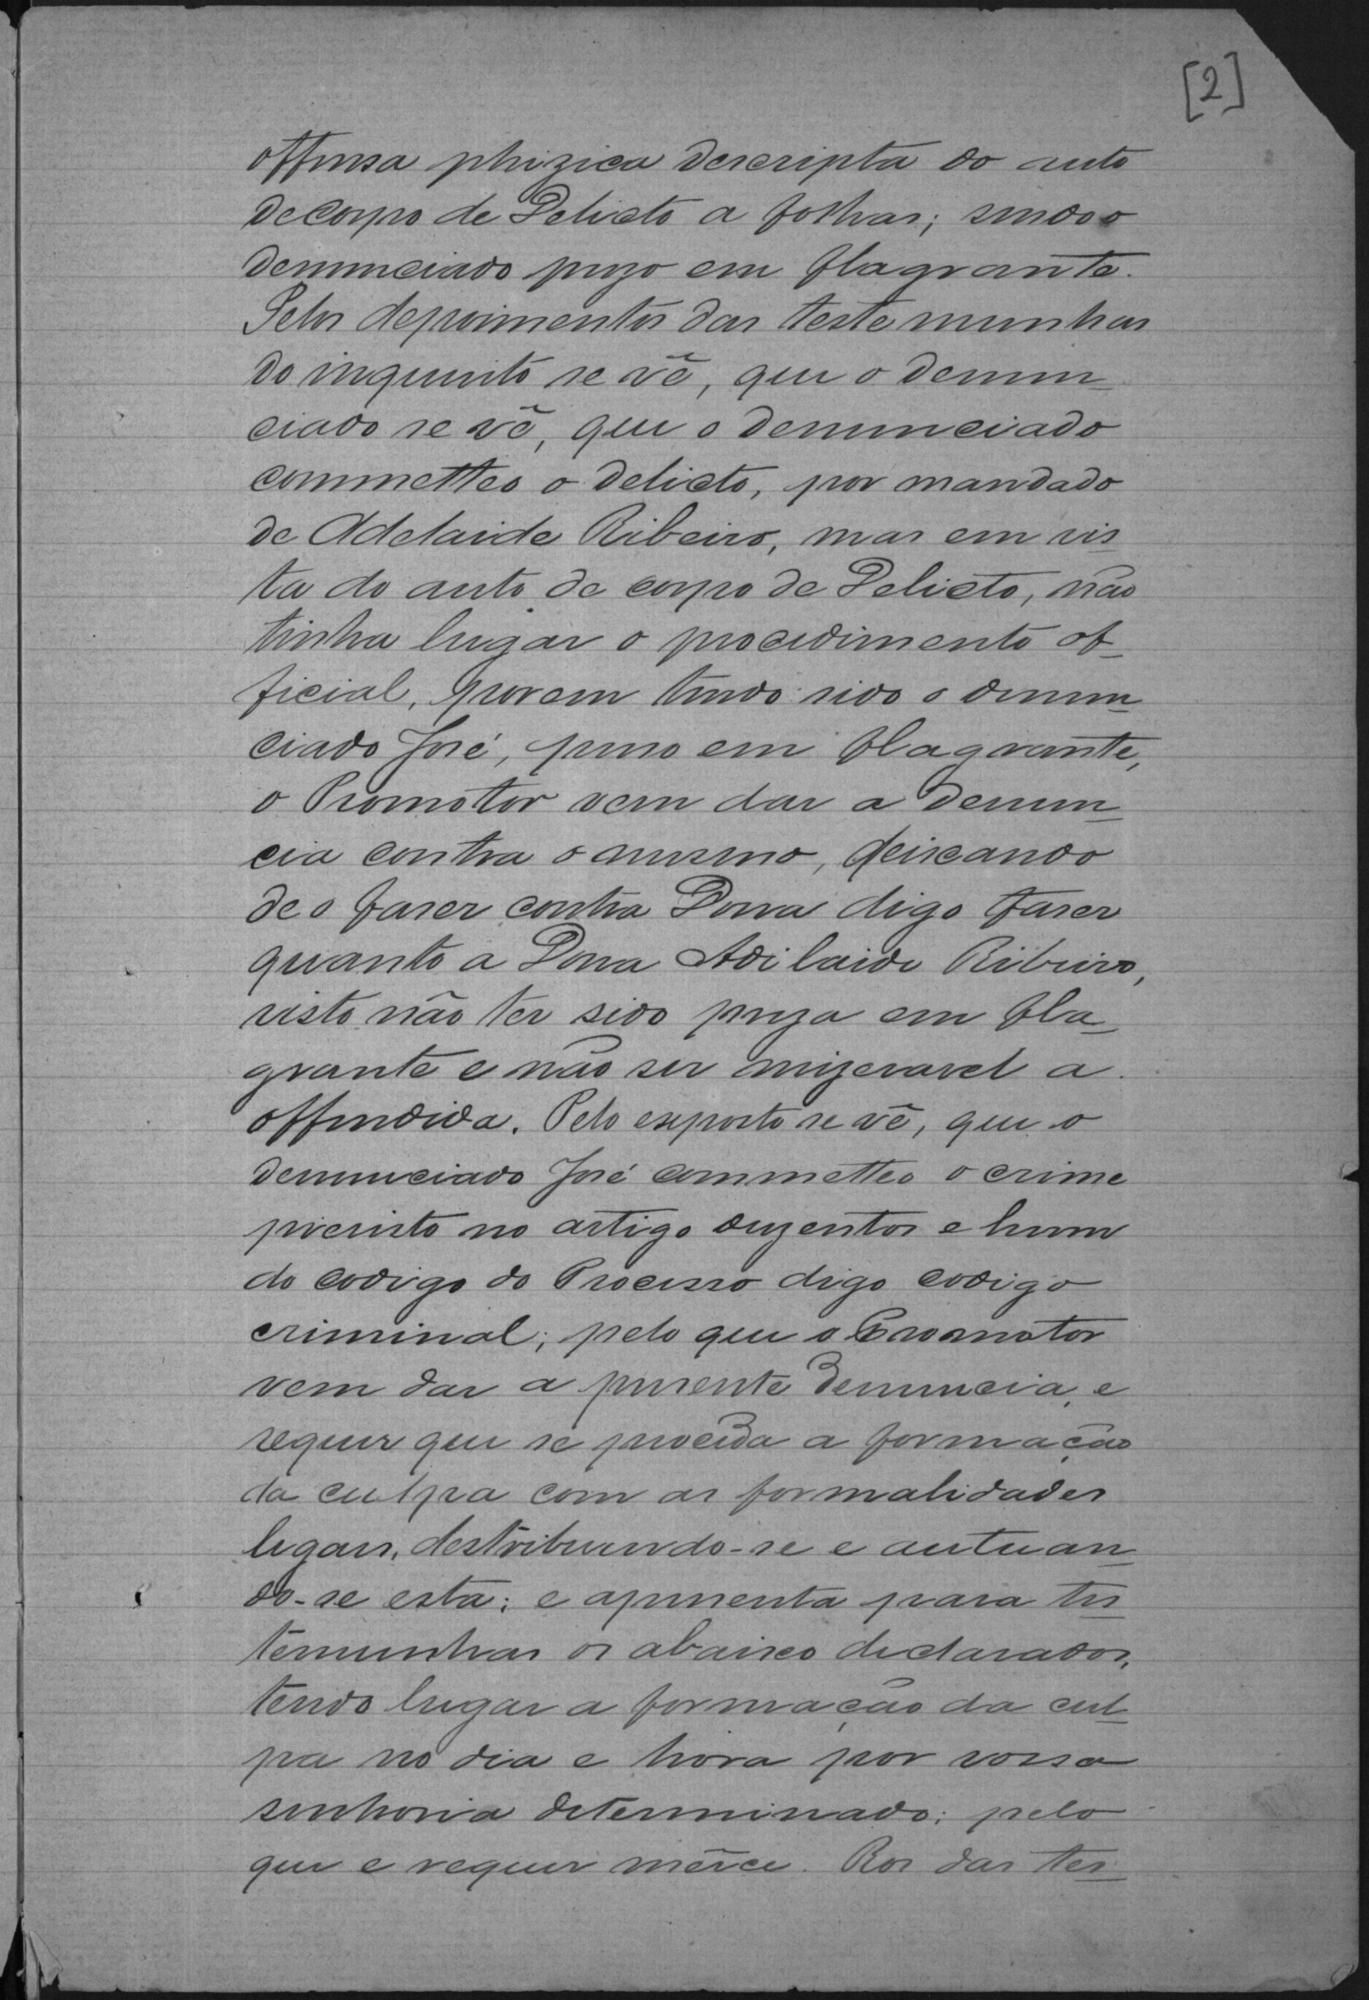 [2]
offensa phizica descripta do auto
de corpo de Delicto a folhas; sendo o
denunciado prezo em flagrante.
Pelos depoimentos das testemunhas
do inquerito se vê, que o denun_
ciado se vê, que o denunciado
commetteo o delicto, por mandado
de Adelaide Ribeiro, mas em vis_
ta do auto de corpo de Delicto, não
tinha lugar o procedimento of_
ficial, porem tendo sido o denun_
ciado José, preso em flagrante,
o Promotor vem dar a denun_
cia contra o mesmo, deixando
de o faser contra Dona digo faser
quanto a Dona Adilaide Ribeiro,
visto não ter sido preza em fla_
grante e não ser mizeravel a
offendida. Pelo exposto se vê, que o
denunciado José commetteo o crime
previsto no artigo duzentos e hum
do codigo do Processo digo codigo
criminal; pelo que o Promotor
vem dar a presente denuncia, e
requer que se proceda a formação
da culpa com as formalidades
legais, destribuindo-se e autuan_
do-se esta; e apresenta para tes_
temunhas os abaixo declarados,
tendo lugar a formação da cul_
pa no dia e hora por vossa
senhoria determinado; pelo
que e requer mêrce. Rol das tes_